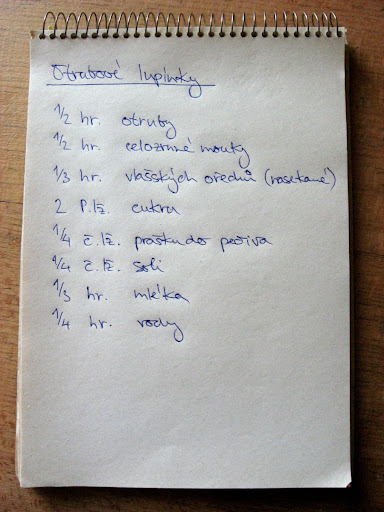 Otrubové lupínky
1/2 hr. otruby
1/2 hr. celozrnné mouky
1/3 hr. vlašských ořechů (nasekané)
2 p.lž. cukru
1/4 č.lž. prášku do pečiva
1/4 č.lž. soli
1/3 hr. mléka
1/4 hr. vody